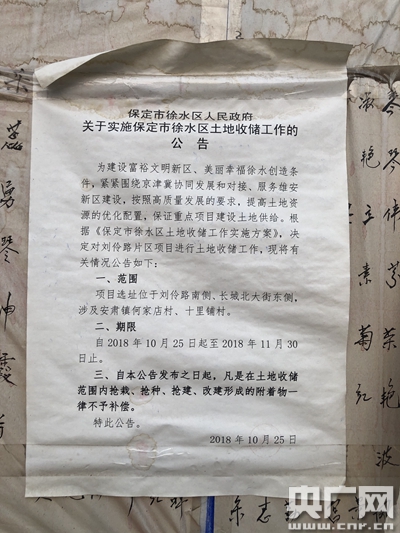 保定市徐水区人民政府
关于实施保定市徐水区土地收储工作的
公 告
为建设富裕文明新区、美丽幸福徐水创造条
件，紧紧围绕京津冀协同发展和对接、服务雄安
新区建设，按照高质量发展的要求，提高土地资
源的优化配置，保证重点项目建设土地供给。根
据《保定市徐水区土地收储工作实施方案》，决
定对刘伶路片区项目进行土地收储工作，现将有
关情况公告如下：
一、范围
项目选址位于刘伶路南侧、长城北大街东侧，
涉及安肃镇何家店村、十里铺村。
二、期限
自 2018 年 10 月 25 日起至 2018 年 11 月 30
日止。
三、自本公告发布之日起，凡是在土地收储
范围内抢栽、抢种、抢建、改建形成的附着物一
律不予补偿。
特此公告。
2018 年 10 月 25 日
央广网
www.cnr.cn